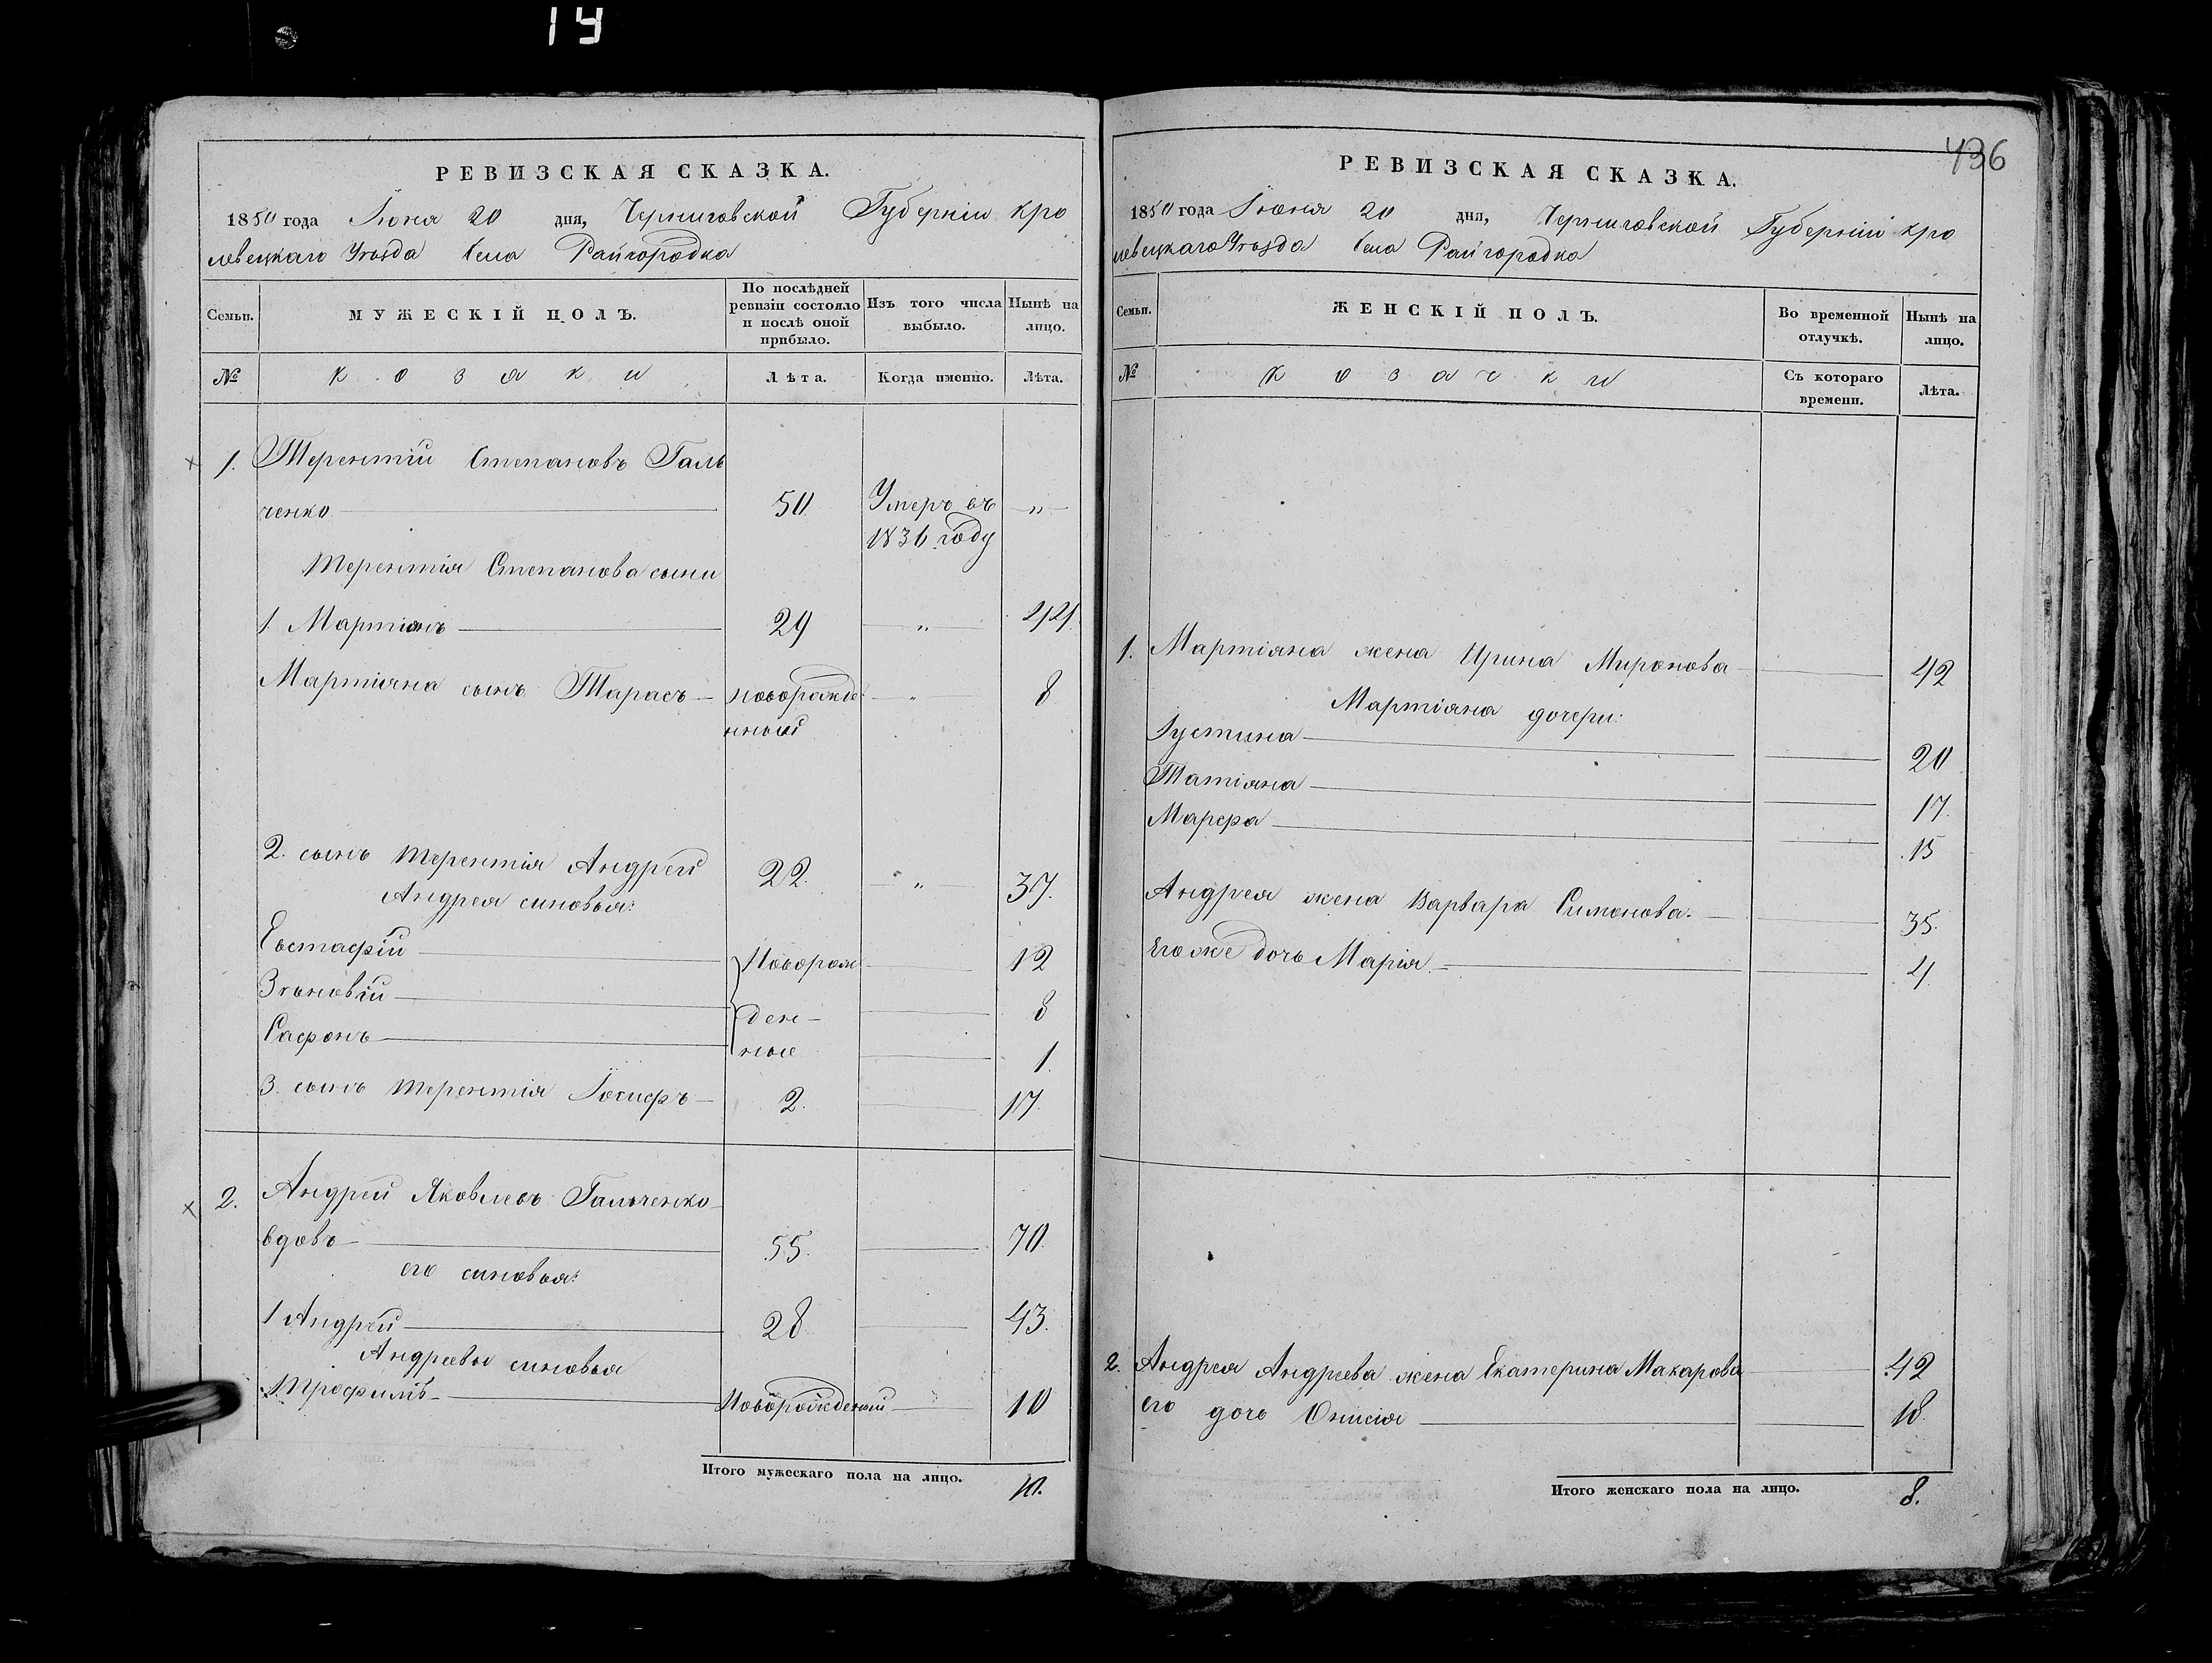 14
РЕВИЗСКАЯ СКАЗКА.
1850 года Іюня 20 дня, Черниговской Губерніи Кро
левецкаго Уезда Села Райгородка
Семьи.
МУЖЕСКІЙ ПОЛЪ.
По послѣдней ревизіи состояло и послѣ оной прибыло.
Изъ того числа выбыло.
Нынѣ на лицо.
№
Козаки
Лѣта.
Когда именно.
Лѣта.
1. Терентій Степановъ Галь
ченко 50 Умеръ въ „
1836 году
Терентія Степанова сыни
1. Мартіянъ 29 „ 44
Мартіяна сынъ Тарасъ новорожде „ 8
нный
2. сынъ Терентія Андрей 22. „ 37.
Андрея синовья:
Евстафій Новорож 12
Зѣновій ден- 8
Сафонъ ные 1.
3. сынъ Терентія Іосифъ 2. 17.
2. Андрей Яковлевъ Гальченко
вдовъ 55. 70.
его синовья:
1 Андрей 28 43.
Андреевы синовья
1. Трофимъ Новорожденный 10
Итого мужескаго пола на лицо. 10.
436
РЕВИЗСКАЯ СКАЗКА.
1850 года Іюня 20 дня, Черниговской Губерніи Кро
левецкаго Уезда Села Райгородка
Семьи.
ЖЕНСКІЙ ПОЛЪ.
Во временной отлучкѣ.
Нынѣ на лицо.
№
Козачки
Съ котораго времени.
Лѣта.
1. Мартіяна жена Ирина Миронова 42
Мартіяна дочери:
Іустина 20
Татіяна 17.
Марфа 15
Андрея жена Варвара Симонова. 35.
Егоже дочь Марія 4.
2. Андрея Андреева жена Екатерина Макарова 42
его дочь Онисія 18.
Итого женскаго пола на лицо. 8.